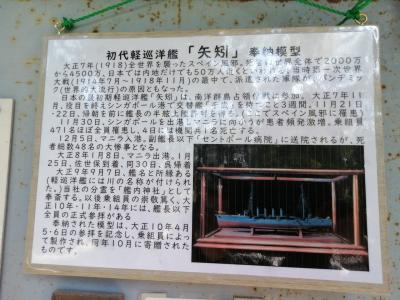 初代軽巡洋艦 「矢矧」 奉納模型
大正7年(1918)全世界を襲ったスペイン風邪。死者は世界全体で2000万
から4500万、日本では内地だけでも50万人近くといわれる。当時第一次世界
大戦(1914年7月～1918年11月)の最中で、派遣された軍隊が、パンデミック
(世界的大流行)の原因ともなった。
日本の最初期軽巡洋艦「矢矧」は、南洋群島占領作戦に参加。大正7年11
月、役目を終えシンガポール港で交替艦「千歳」を待つこと3週間。11月21日
・22日、帰朝を前に艦長の半舷上陸許可を得
11月30日、シンガポールを出港、マニラに向うが患者頻発激増。乗組員
471名ほぼ全員罹患し、4日には機関兵1名死亡する。
12月5日、マニラ入港。副艦長以下「セントポール病院」に送院されるが、死
者総数48名の大惨事となる。
大正8年1月8日、マニラ出港、1月
25日、佐世保到着、同30日、呉帰着
大正9年9月7日、艦名と所縁ある
(軽巡洋艦には川の名称が付けられ
た。)当社の分霊を「艦内神社」として
奉斎する。以後乗組員の崇敬篤く、大
正10年・11年・14年には、艦長以下
全員の正式参拝がある
奉納された模型は、大正10年4月
5・6日の参拝を記念し、乗組員によっ
て製作され、同年10月に寄贈された
ものです。